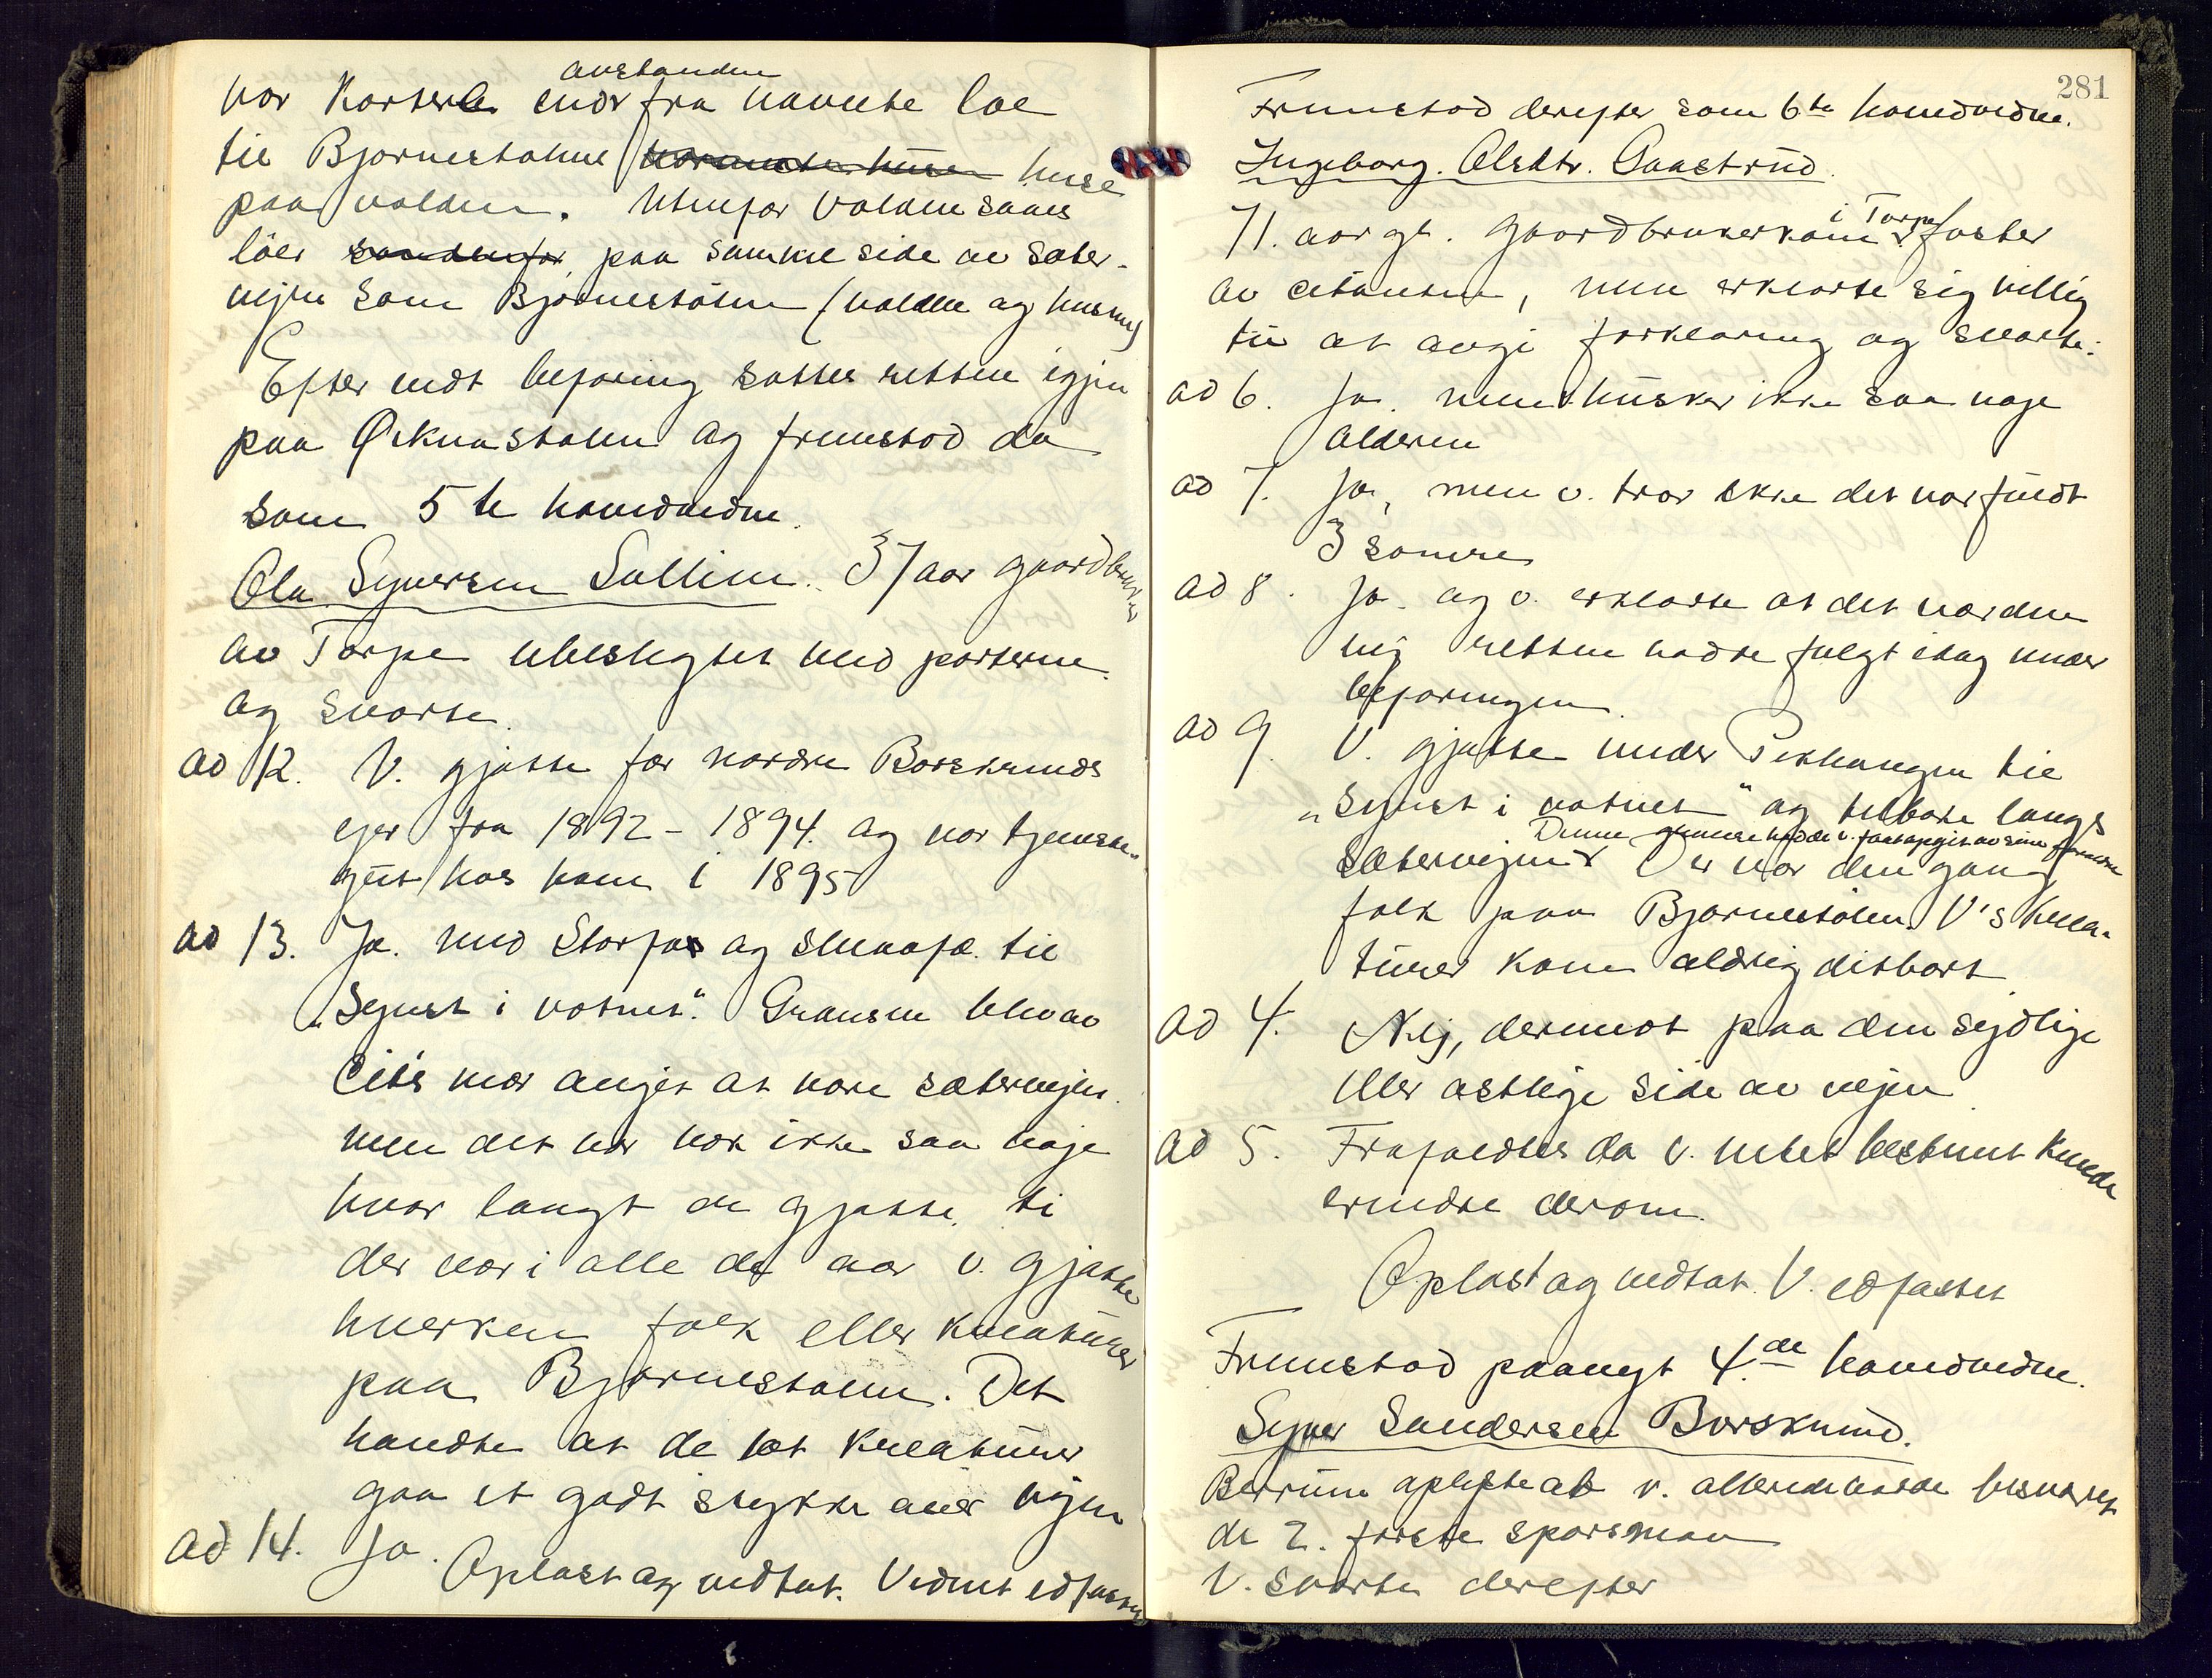 avstanden
var kortere end fra nævnte løe
til Bjørnestølens huse
paa volden. Utenfor volden saaes
løer paa samme side av sæter-
vejen som Bjørnestølen (volden og husene)
Efter endt befaring sattes retten igjen
paa Ørknastølen og fremstod da
som 5te hovedvidne.
Ola Syversen Sallien. 37 aar gaardbruker
av Torpe ubeslegtet med parterne
og svarte
ad 12. V. gjætte for nordre Børskruds
ejer fra 1892 - 1894. og var tjeneste-
gut hos ham i 1895
ad 13. Ja. med Storfæ og smaafæ til
"Synst i vatnet". Grænsen blev av
Cit's mor angit at være sætervejen.
men det var nok ikke saa nøje
hvor langt de gjætte, ti
der var i alle de aar v. gjætte
hverken folk eller kreaturer
paa Bjørnestølen. Det
hændte at de lot kreaturer
gaa et godt stykke over vejen
ad 14. Ja.
Oplæst og vedtat. Vidnet edfæstet
281
Fremstod derefter som 6te hovedvidne.
Ingeborg Olsdtr. Gaastrud.
71. aar gl. gaardbrukerkone i Torpe faster
av citanten, men erklærte sig villig
til at avgi forklaring og svarte:
ad 6. Ja. men husker ikke saa nøje
alderen
ad 7. Ja, men v. tror ikke det var fuldt
3 somre
ad 8. Ja. og v. erklærte at det var den
vej retten hadde fulgt idag under
befaringen.
ad 9. V. gjætte under til
"Synst i vatnet" og tilbake langs
Denne grænse hadde v. faat opgit av sine forældre
sætervejen. Der var den gang
folk paa Bjørnestølen. V's krea-
turer kom aldrig ditbort
ad 4. Nej, derimot paa den sydlige
eller østlige side av vejen
ad 5. Frafaldtes da v. intet bestemt kunde
erindre derom.
Oplæst og vedtat. V. edfæstet
Fremstod paanyt 4.de hovedvidne.
Syver Sandersen Børskrud.
Berrum oplyste at v. allerede hadde besvaret
de 2. første spørsmaal
V. svarte derefter